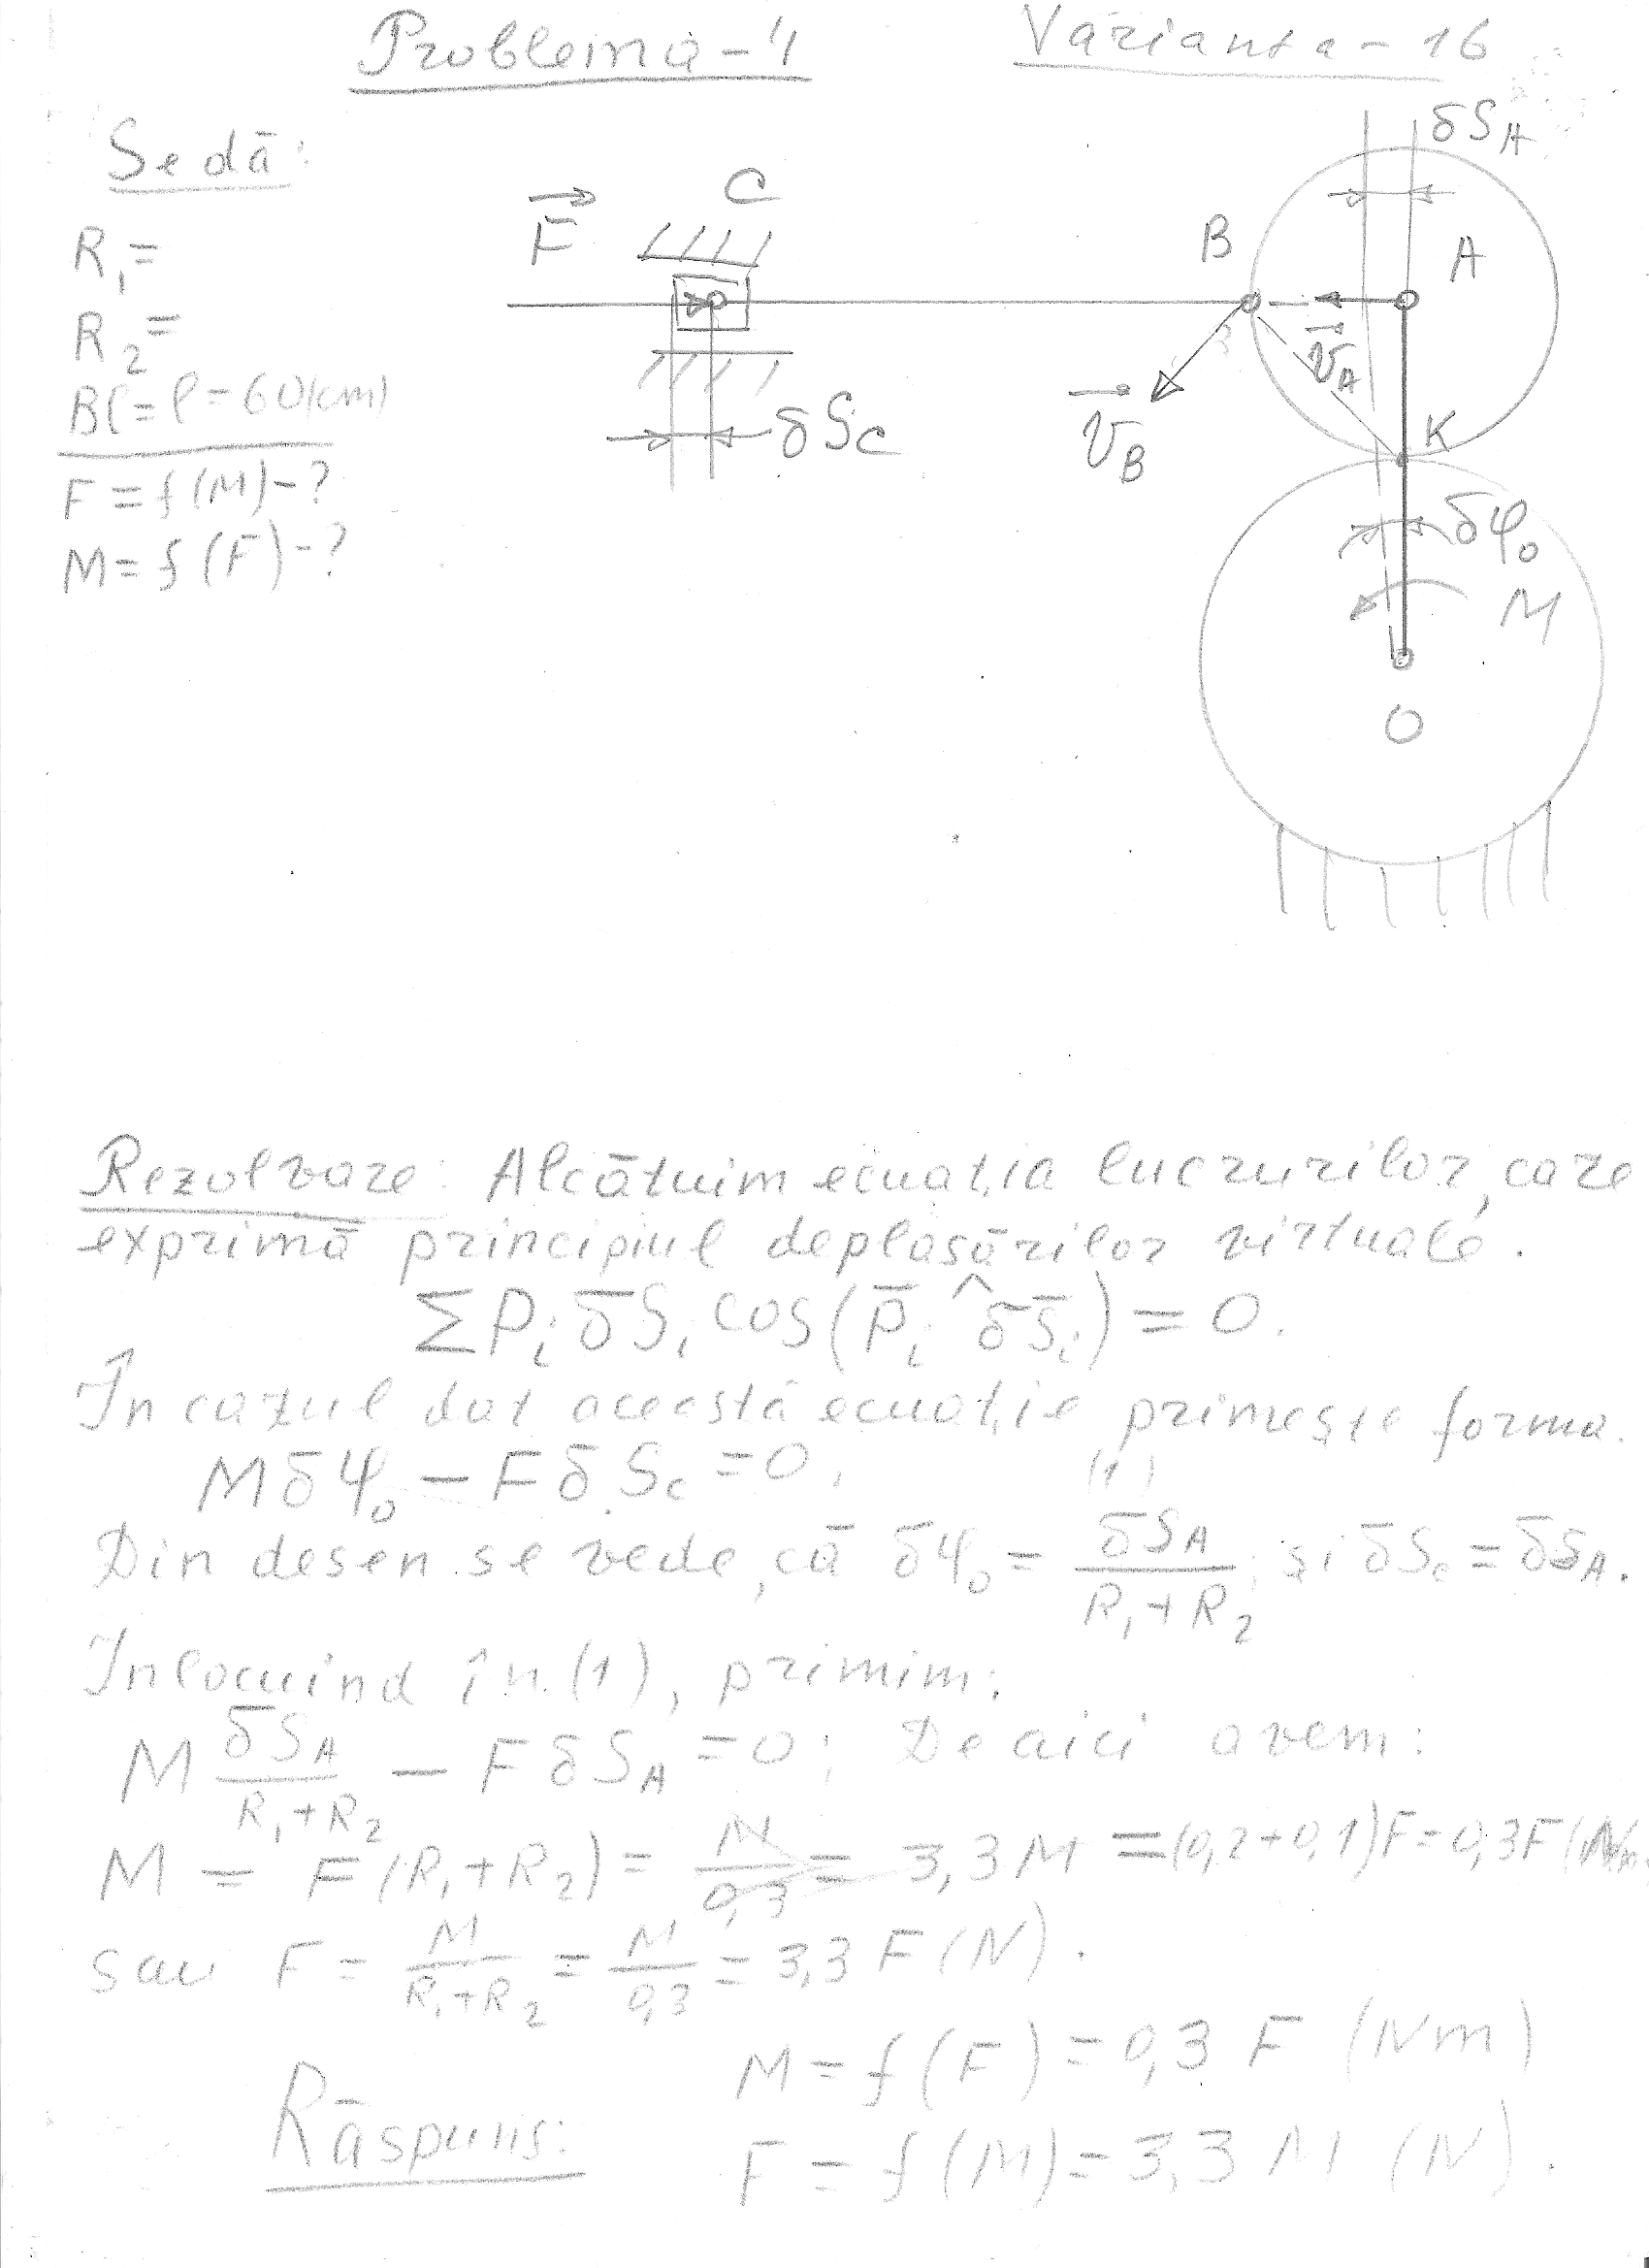 Problema-4 Varianta-16
Se dā:
R₁=
R₂=
BC=l=60(cm)
F=f(M)-?
M=f(F)-?
F
C
δSc
B
A
δS_A
v_A
v_B
K
δφ₀
M
O
Rezolvare: Alcātuim ecuaţia lucrurilor, care
exprimā principiul deplasārilor virtuale.
ΣPᵢ δSᵢ cos(P̄ᵢ ^ δS̄ᵢ) = 0.
În cazul dat aceastā ecuaţie primeşte forma.
Mδφ₀ - FδSc = 0, (1)
Din desen se vede, cā δφ₀ = δS_A/(R₁+R₂); şi δSc = δS_A.
Înlocuind în (1), primim:
M δS_A/(R₁+R₂) - F δS_A = 0; De aici avem:
M = F(R₁+R₂) = M/0,3 = 3,3M = (0,2+0,1)F = 0,3F (Nm)
sau F = M/(R₁+R₂) = M/0,3 = 3,3 F (N).
Rāspuns: M = f(F) = 0,3 F (Nm)
F = f(M) = 3,3 M (N).